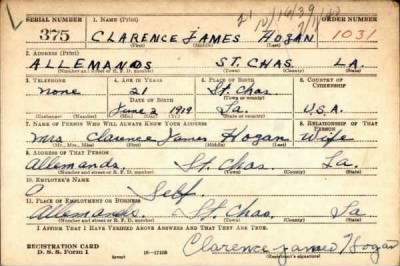 SERIAL NUMBER 1. NAME (Print) ORDER NUMBER
375 CLARENCE JAMES HOGAN 1031
(First) (Middle) (Last)
2. ADDRESS (Print)
ALLEMANDS ST. CHAS. LA.
(Number and street or R. F. D. number) (Town) (County) (State)
3. TELEPHONE 4. AGE IN YEARS 5. PLACE OF BIRTH 6. COUNTRY OF CITIZENSHIP
none 21 St. Chas.
DATE OF BIRTH (Town or county)
June 2 1919 La. U.S.A.
(Exchange) (Number) (Mo.) (Day) (Yr.) (State or country)
7. NAME OF PERSON WHO WILL ALWAYS KNOW YOUR ADDRESS 8. RELATIONSHIP OF THAT PERSON
Mrs Clarence James Hogan Wife
(Mr., Mrs., Miss) (First) (Middle) (Last)
9. ADDRESS OF THAT PERSON
Allemands. St. Chas. La
(Number and street or R. F. D. number) (Town) (County) (State)
10. EMPLOYER'S NAME
Self.
11. PLACE OF EMPLOYMENT OR BUSINESS
Allemands. St. Chas. La
(Number and street or R. F. D. number) (Town) (County) (State)
I AFFIRM THAT I HAVE VERIFIED ABOVE ANSWERS AND THAT THEY ARE TRUE.
REGISTRATION CARD
D. S. S. Form 1 Clarence James Hogan
(Registrant's signature)